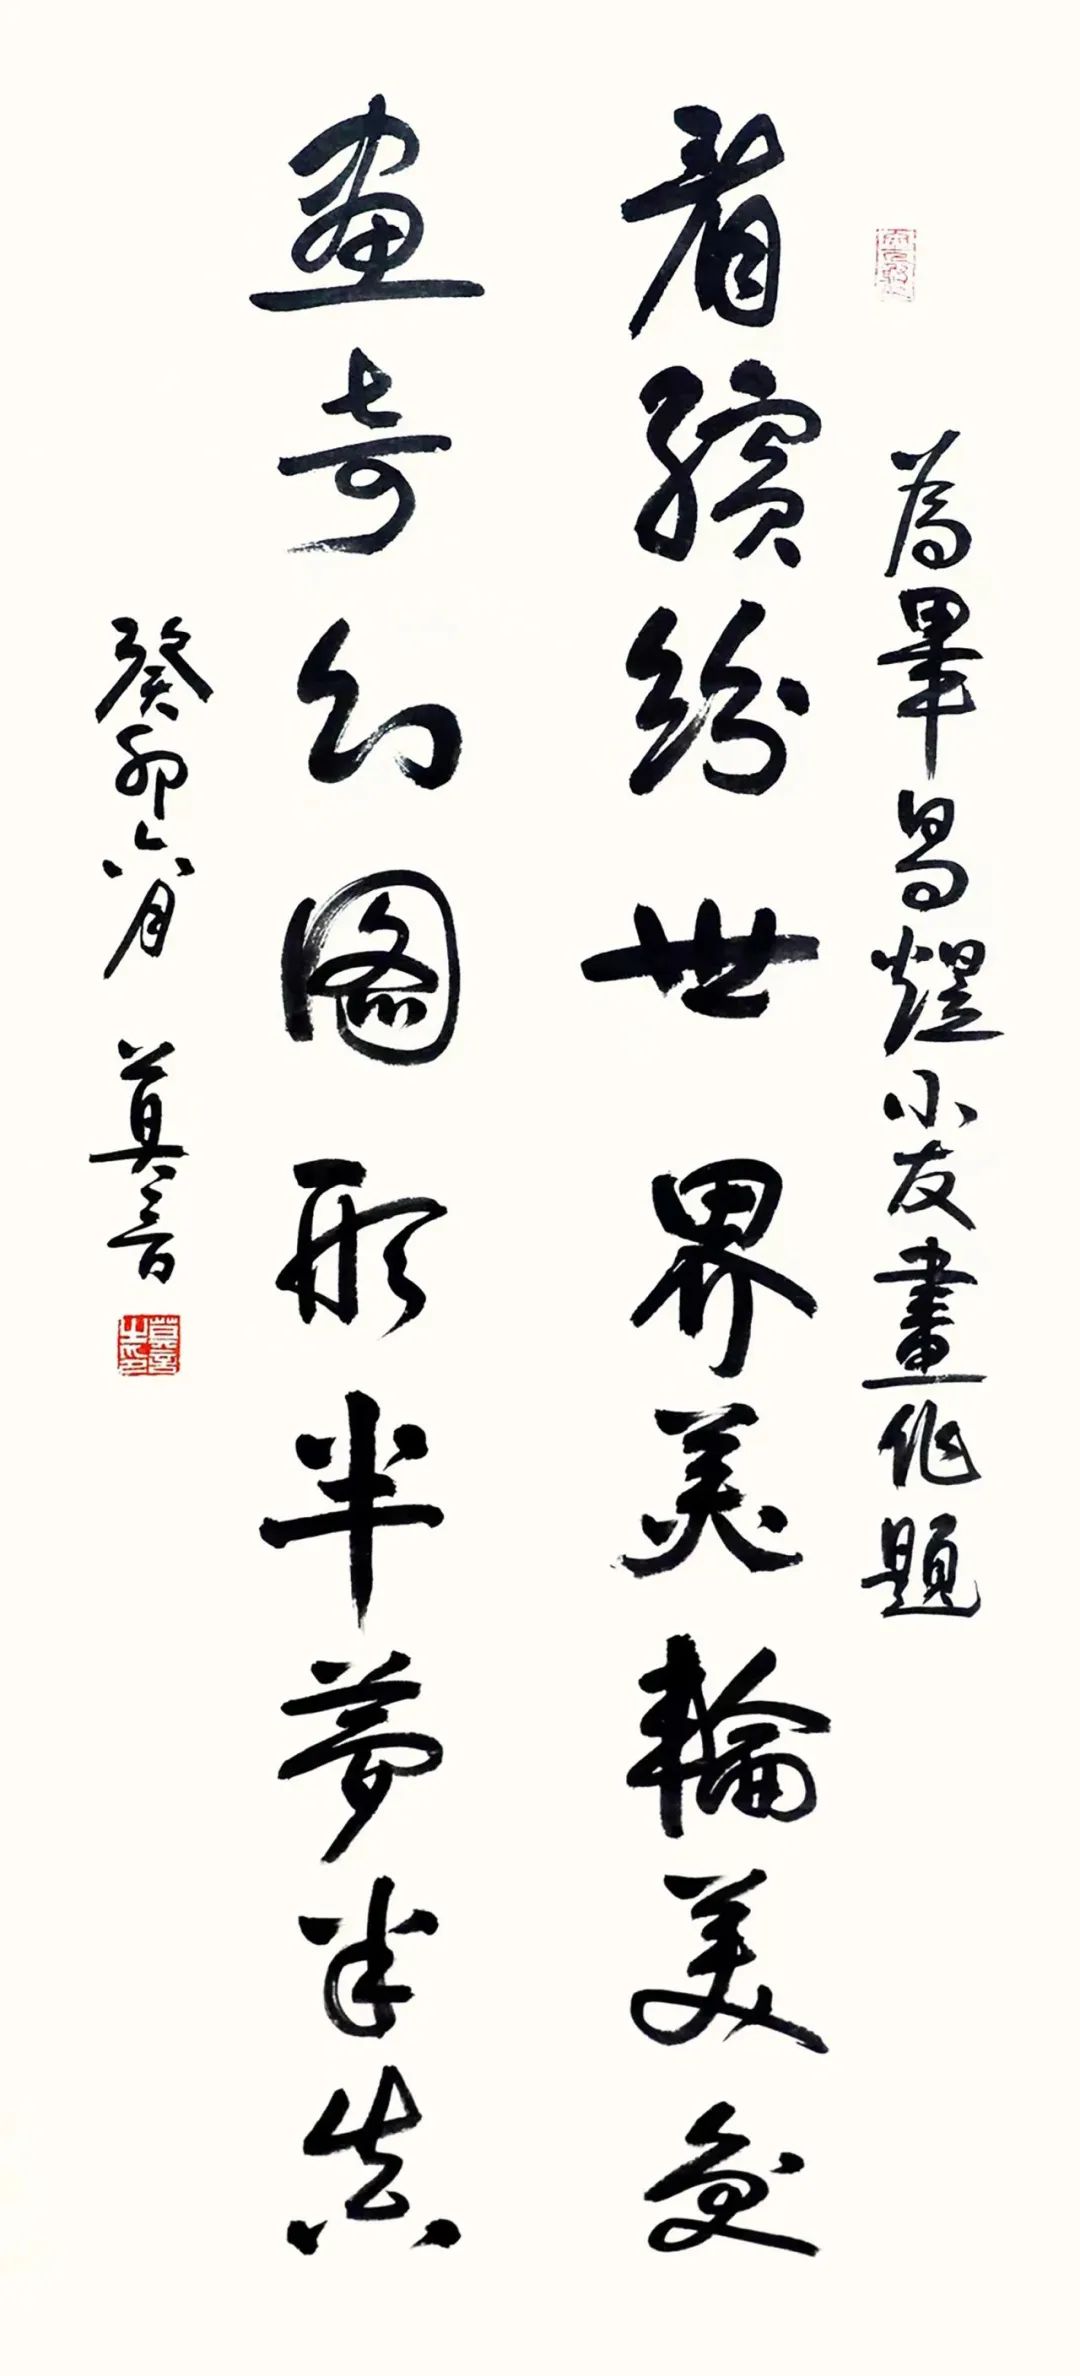 為畢昌煜小友畫作題
看繽紛世界美輪美奐
畫奇幻圖形半夢半真
癸卯六月 莫言
莫言之印